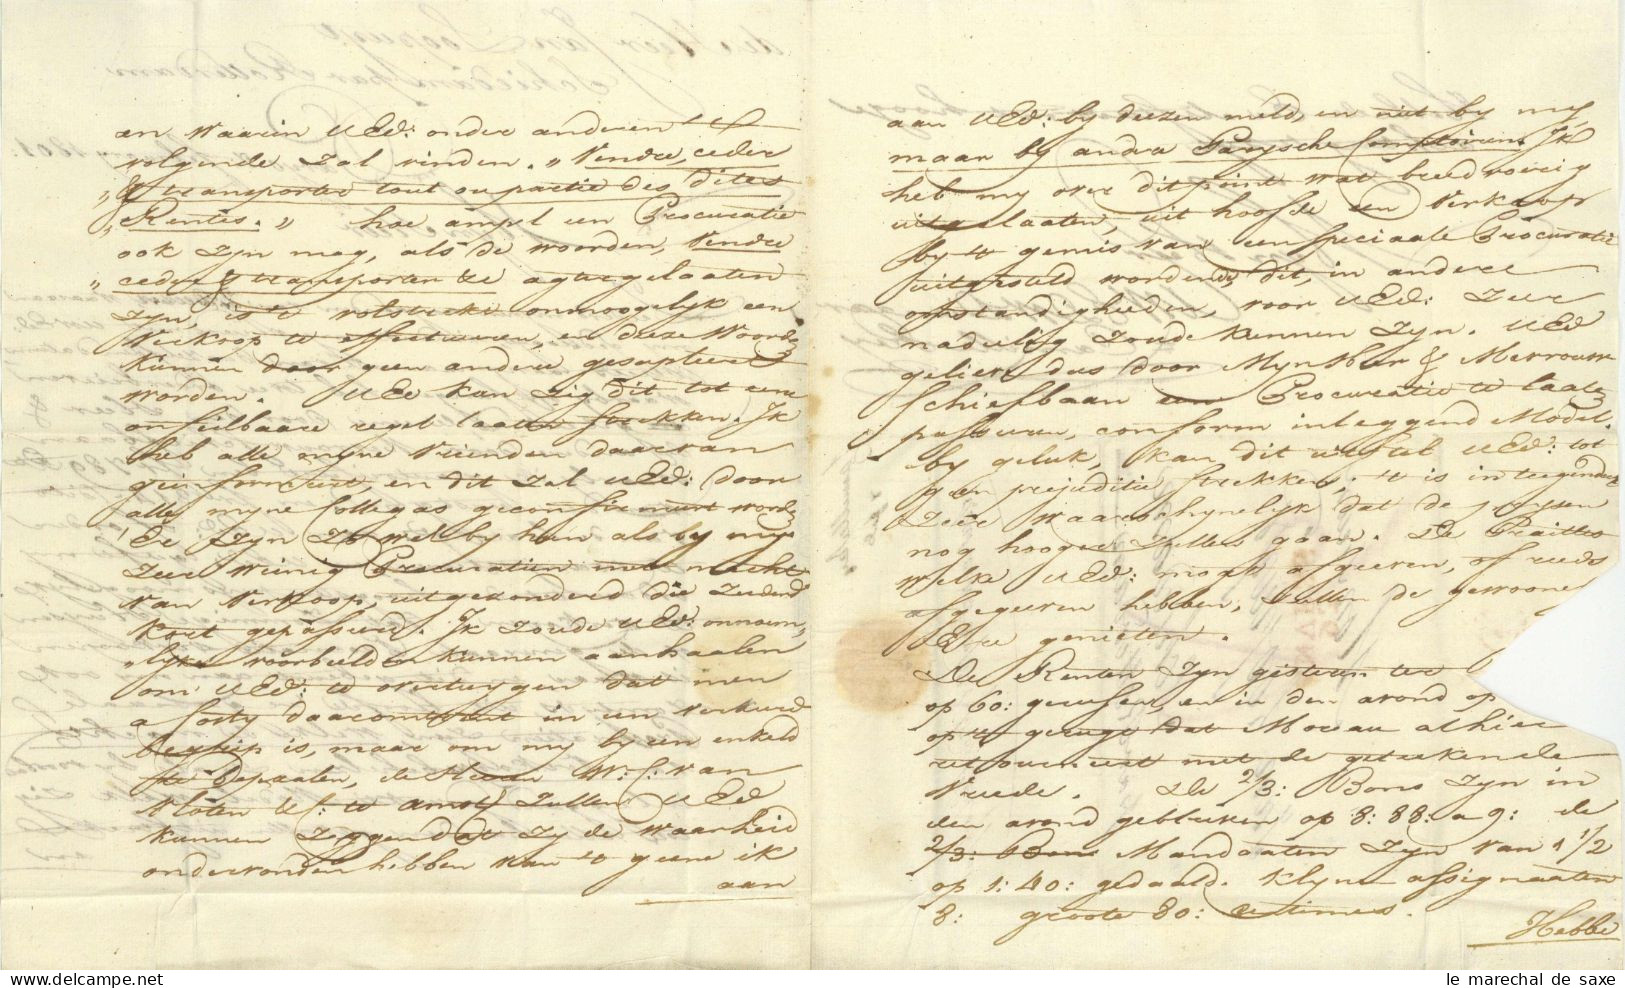 en waarin UEd: onder anderen 't
volgende zal vinden. „Vendre, ceder
„& transporter tout ou partie des dites
„Rentes.„ hoe ampl een Procuratie
ook zyn mag, als de woorden, Vendre
„ceder & transporter &c agtergelaaten
zyn, is 't volstrekt onmoogelyk een
Verkoop te effectueeren, en deze woorden
kunnen door geen andere gesupleerd
worden. UEd kan zig dit tot eene
onfeilbaare regel laaten strekken. Ik
heb alle myne Vrienden daarvan
geinformeert, en dit zal UEd: door
alle myne Collegas geconfirmeert worden
Er zyn zo wel by hun als by my
zeer weinig Procuratien met macht
van Verkoop, uitgezonderd die zedert
kort gepasseerd. Ik zoude UEd: onnoem,
„lyke voorbeelden kunnen aanhaalen
om UEd: te overtuygen dat men
daaromtrent in een verkeerd
begrip is, maar om my by een enkeld
te bepaalen, de Heeren W: C: van
Vloten &C: te Amstm zullen UEd
kunnen zeggen dat zy de waarheid
ondervonden hebben van 't geene ik
aan
aan UEd: by deezen meld, en niet by my,
maar by andre Parysche Comptoiren. Ik
heb my over dit point wat breedvoerig
uitgelaaten, uit hoofde een Verkoop
by 't gemis van een speciaale Procuratie
uitgesteld worden dit, in andere
omstandigheden, voor UEd: zeer
nadeelig zoude kunnen zyn. UEd
gelieve dus door Mynheer & Mevrouwe
Schiefbaan een Procuratie te laaten
passeeren, conform inleggend Model.
by geluk, kan dit uitstel UEd: tot
geen prejuditie strekken; 't is in teegendeel
zeer waarschynelyk dat de prysen
nog hooger zullen gaan. De Traittes
welke UEd: mogt afgeeven, of reeds
afgegeeven hebben, zullen de gewoone
Eere genieten.
De Renten zyn gisteren ter
op 60: gereesen, en in den avond op
op 't gerugt dat Moreau alhier
retourneert met de getekende
Vreede. De 2/3: Bons zyn in
den avond gebleeven op 8: 88: a 9: de
2/3: Bons Mandaaten zyn van 1 1/2
op 1: 40: gedaald. Klyne assignaaten
8: groote 80: Centimes.
Hebbe
le marechal de saxe